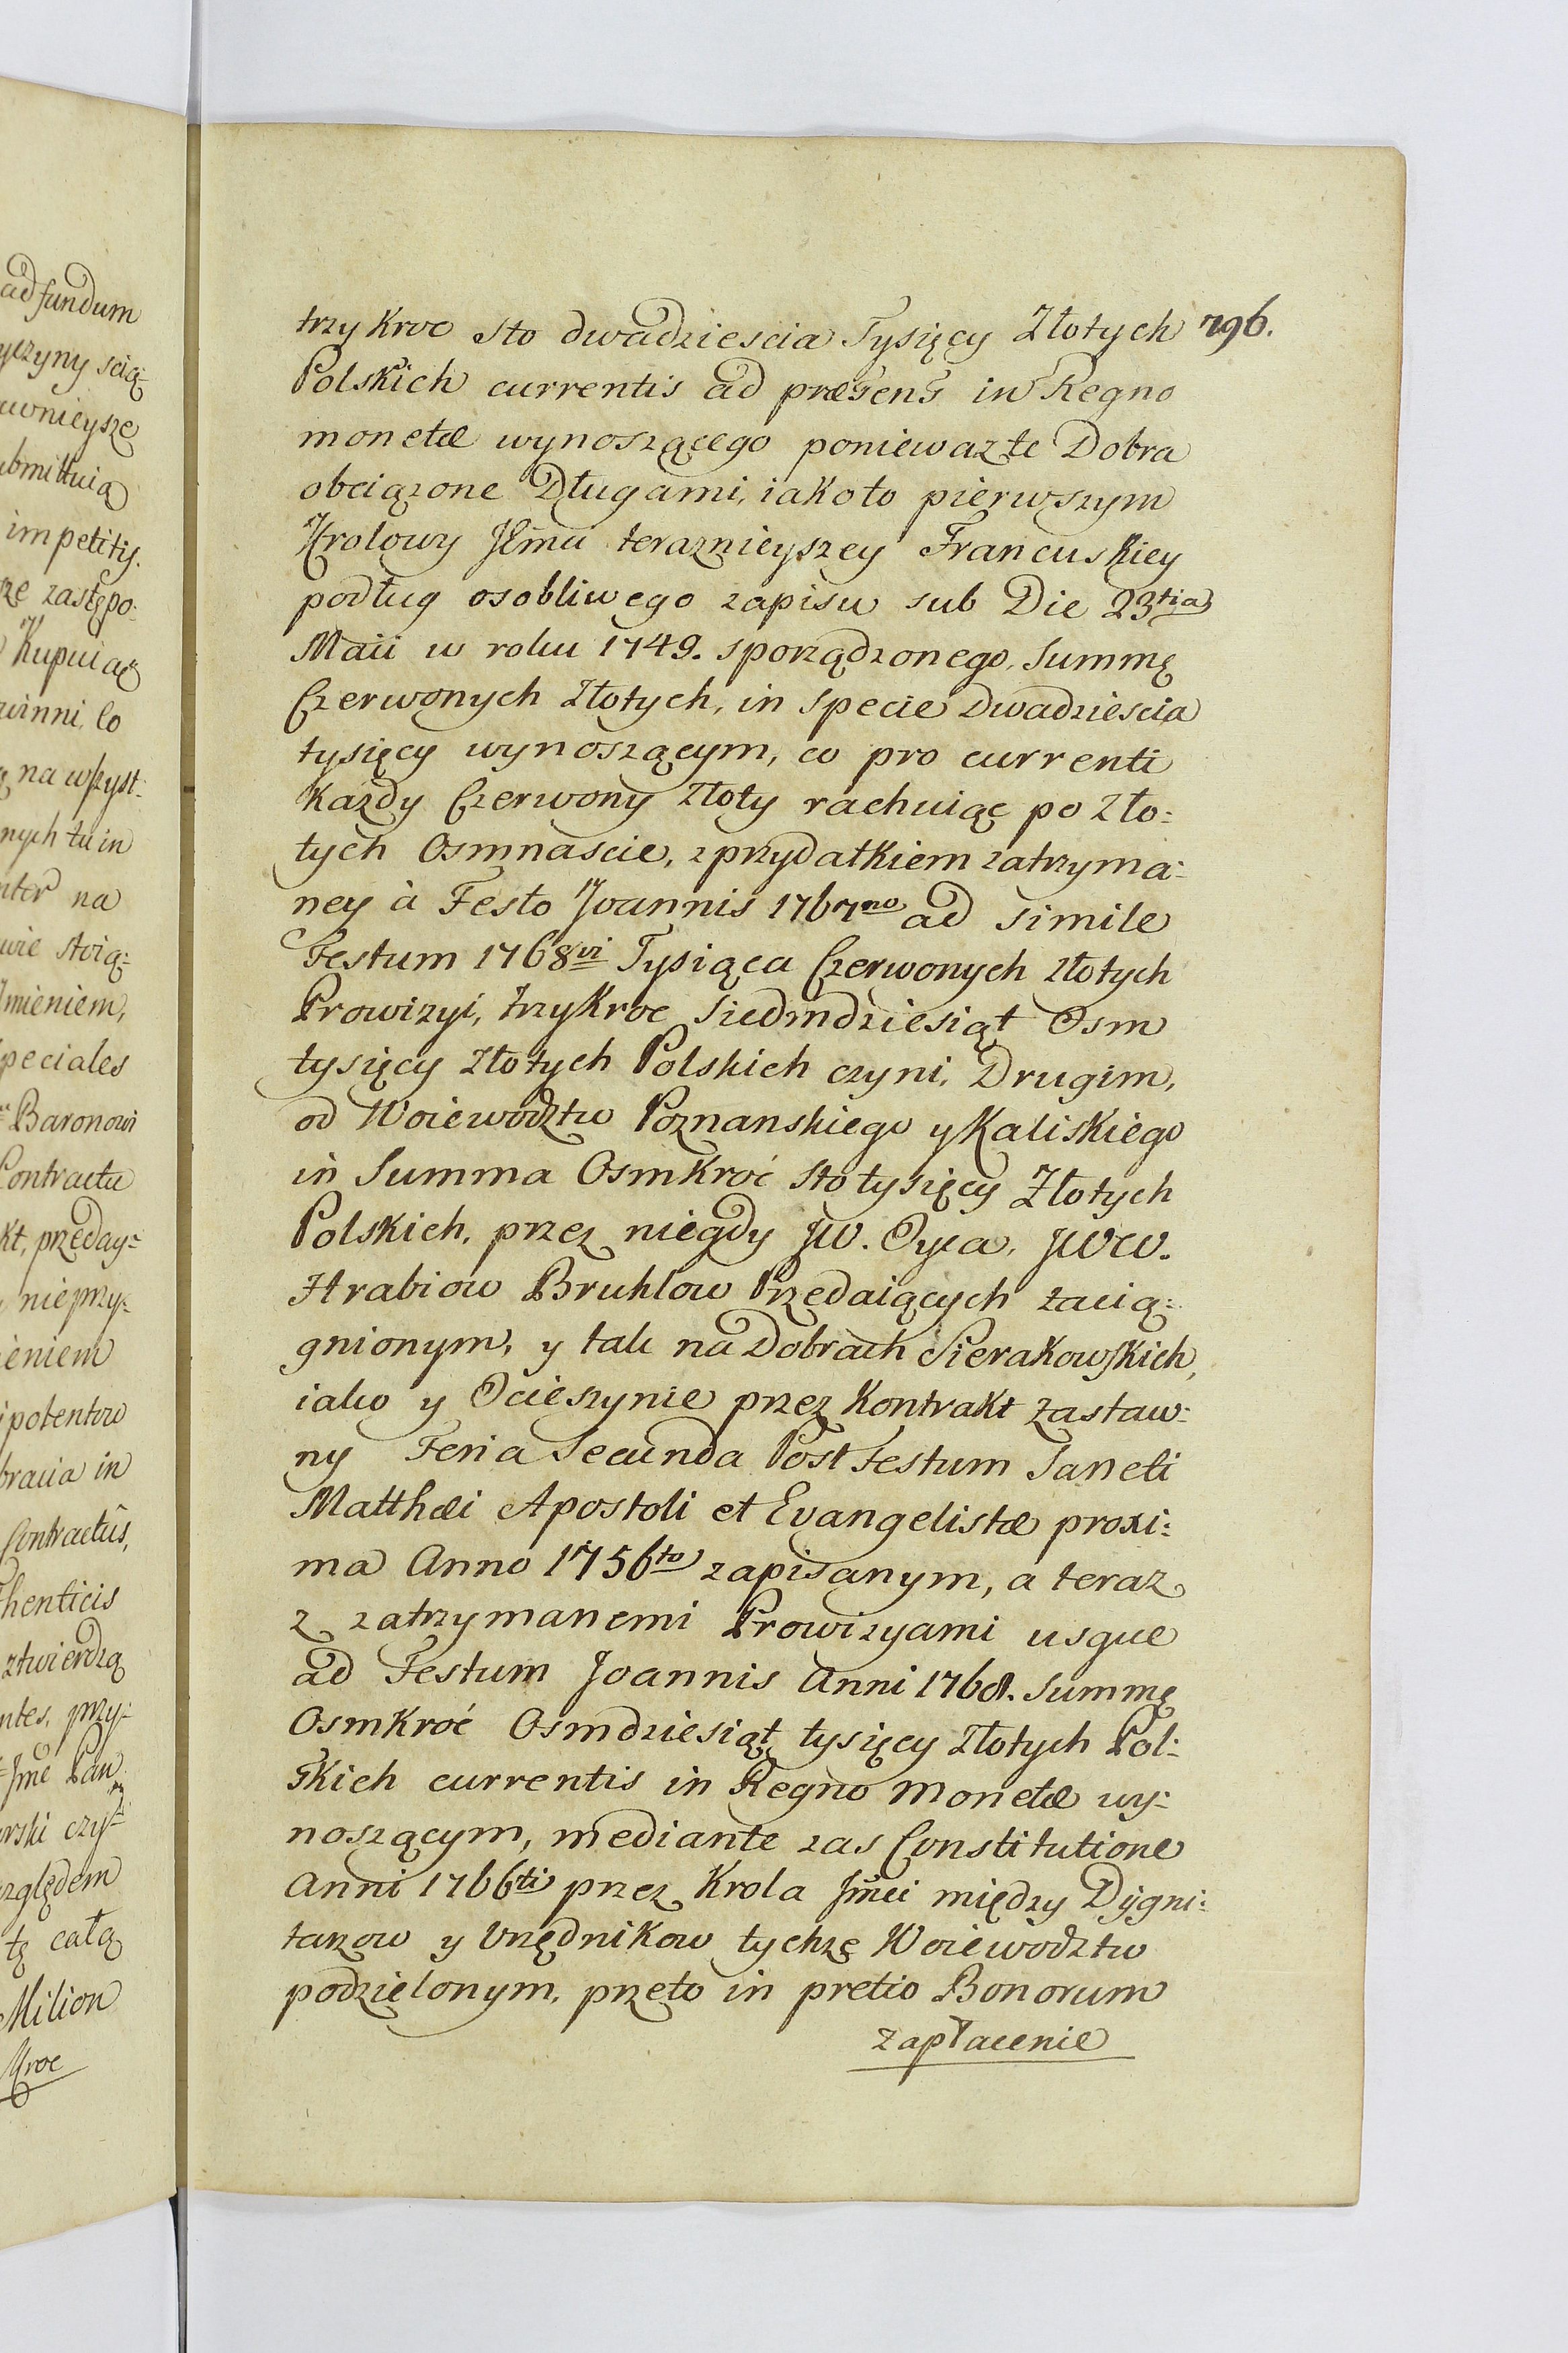 ad fundum
yczyny scią-
wnieysze
ubmittuią
impetitÿ.
rze zastępo:
Kupuiąc
winni, co
ę na wszyst:
nych tu in
nter na
wie stoią:
Jmieniem,
speciales
Baronowi
Contractu
kt, przeday=
nieprzy:
ieniem
ipotentow
bracia in
Contractûs,
Thenticis
ztwierdzą
ntes, przy:
Jmć Pan
rski czy=
względem
tę całą
Milion
Kroc
796.
trzy Kroc Sto dwadziescia Tysięcy Złotych
Polskich currentis ad præsens in Regno
monetæ wynoszącego poniewaz te Dobra
obciązone Długami, iako to pierwszym
Krolowy Jeĩmci teraznieyszey Francuskiey
podług osobliwego zapisu sub Die 23tia
Maii w roku 1749. sporządzonego, Summę
Czerwonych Złotych, in specie Dwadziescia
tysięcy wynoszącym, co pro currenti
Kazdy Czerwony Złoty rachuiąc po Zło:
tych Osmnascie, z przydatkiem zatrzyma:
ney à Festo Joannis 1767mo ad simile
Festum 1768vi Tysiąca Czerwonych złotych
Prowizyi, trzy Kroc Siedmdziesiąt Osm
tysięcy Złotych Polskich czyni, Drugim,
od Woiewodztw Poznanskiego y Kaliskiego
in Summa Osmkroć sto tysięcy Złotych
Polskich, przez niegdy JW. Oyca, JWW.
Hrabiow Bruhlow Przedaiących zacią:
gnionym, y tak na Dobrach Sierakowskich,
iako y Ocieszynie przez Kontrakt zastaw:
ny Feria Secunda Post Festum Sancti
Matthæi Apostoli et Evangelistæ proxi:
ma Anno 1756to zapisanym, a teraz
z zatrzymanemi Prowizyami usque
ad Festum Joannis Anni 1768. Summę
Osmkroć Osmdziesiąt tysięcy Złotych Pol:
skich currentis in Regno Monetæ wy:
noszącym, mediante zas Constitutione
Anni 1766ti przez Krola Jmći między Dygni:
tarzow y Urzędnikow tychze Woiewodztw
podzielonym, przeto in pretio Bonorum
zapłacenie